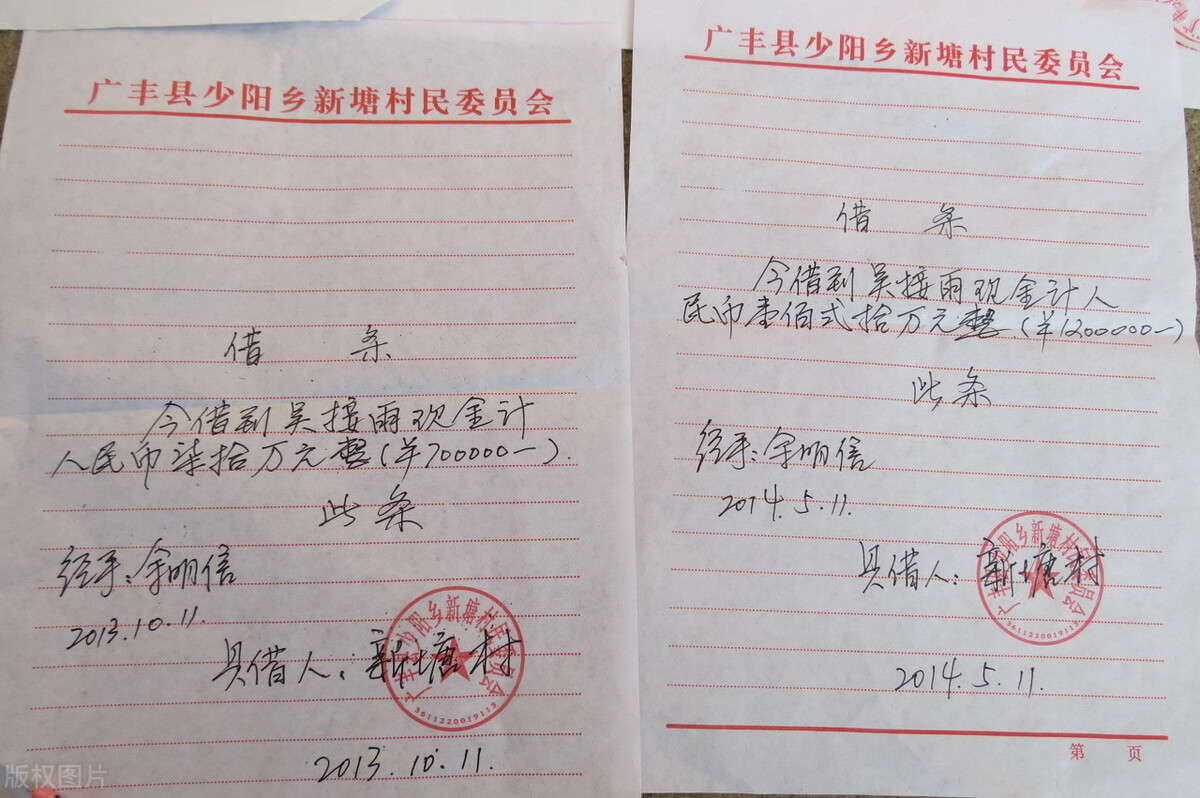 广丰县少阳乡新塘村民委员会
借 条
今借到吴接雨现金计
人民币柒拾万元整(羊700000—).
此条
经手:余明信
2013.10.11.
具借人:新塘村
广丰县少阳乡新塘村民委员会
3611220019113
2013.10.11.
版权图片
广丰县少阳乡新塘村民委员会
借 条
今借到吴接雨现金计人
民币壹佰弍拾万元整(羊1200000—)
此条
经手:余明信
2014.5.11.
具借人:新塘村
广丰县少阳乡新塘村民委员会
3611220019113
2014.5.11.
第 页